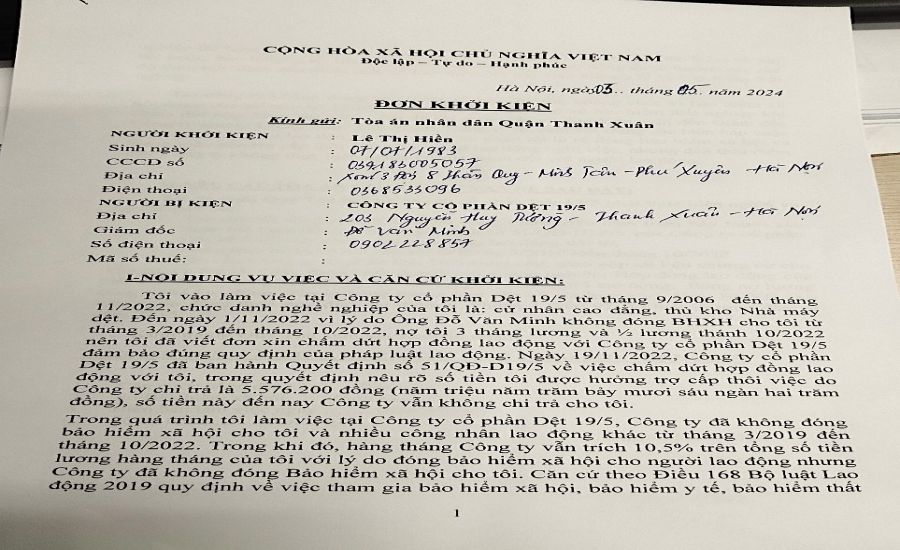 CỘNG HÒA XÃ HỘI CHỦ NGHĨA VIỆT NAM
Độc lập – Tự do – Hạnh phúc
Hà Nội, ngày 03.. tháng 05.. năm 2024
ĐƠN KHỞI KIỆN
Kính gửi: Tòa án nhân dân Quận Thanh Xuân
NGƯỜI KHỞI KIỆN : Lê Thị Hiền
Sinh ngày : 07/07/1983
CCCD số : 039183005057
Địa chỉ : Xóm 3 8 Thần Quy - Minh Tân - Phú Xuyên - Hà Nội
Điện thoại : 0368533096
NGƯỜI BỊ KIỆN : CÔNG TY CỔ PHẦN DỆT 19/5
Địa chỉ : 203 Nguyễn Huy Tưởng - Thanh Xuân - Hà Nội
Giám đốc : Đỗ Văn Minh
Số điện thoại : 0902228857
Mã số thuế: :
I-NỘI DUNG VỤ VIỆC VÀ CĂN CỨ KHỞI KIỆN:
Tôi vào làm việc tại Công ty cổ phần Dệt 19/5 từ tháng 9/2006 đến tháng
11/2022, chức danh nghề nghiệp của tôi là: cử nhân cao đẳng, thủ kho Nhà máy
dệt. Đến ngày 1/11/2022 vì lý do Ông Đỗ Văn Minh không đóng BHXH cho tôi từ
tháng 3/2019 đến tháng 10/2022, nợ tôi 3 tháng lương và ½ lương thánh 10/2022
nên tôi đã viết đơn xin chấm dứt hợp đồng lao động với Công ty cổ phần Dệt 19/5
đảm bảo đúng quy định của pháp luật lao động. Ngày 19/11/2022, Công ty cổ phần
Dệt 19/5 đã ban hành Quyết định số 51/QĐ-D19/5 về việc chấm dứt hợp đồng lao
động với tôi, trong quyết định nêu rõ số tiền tôi được hưởng trợ cấp thôi việc do
Công ty chi trả là 5.576.200 đồng (năm triệu năm trăm bảy mươi sáu ngàn hai trăm
đồng), số tiền này đến nay Công ty vẫn không chi trả cho tôi.
Trong quá trình tôi làm việc tại Công ty cổ phần Dệt 19/5, Công ty đã không đóng
bảo hiểm xã hội cho tôi và nhiều công nhân lao động khác từ tháng 3/2019 đến
tháng 10/2022. Trong khi đó, hàng tháng Công ty vẫn trích 10,5% trên tổng số tiền
lương hàng tháng của tôi với lý do đóng bảo hiểm xã hội cho người lao động nhưng
Công ty đã không đóng Bảo hiểm xã hội cho tôi. Căn cứ theo Điều 168 Bộ luật Lao
động 2019 quy định về việc tham gia bảo hiểm xã hội, bảo hiểm y tế, bảo hiểm thất
1